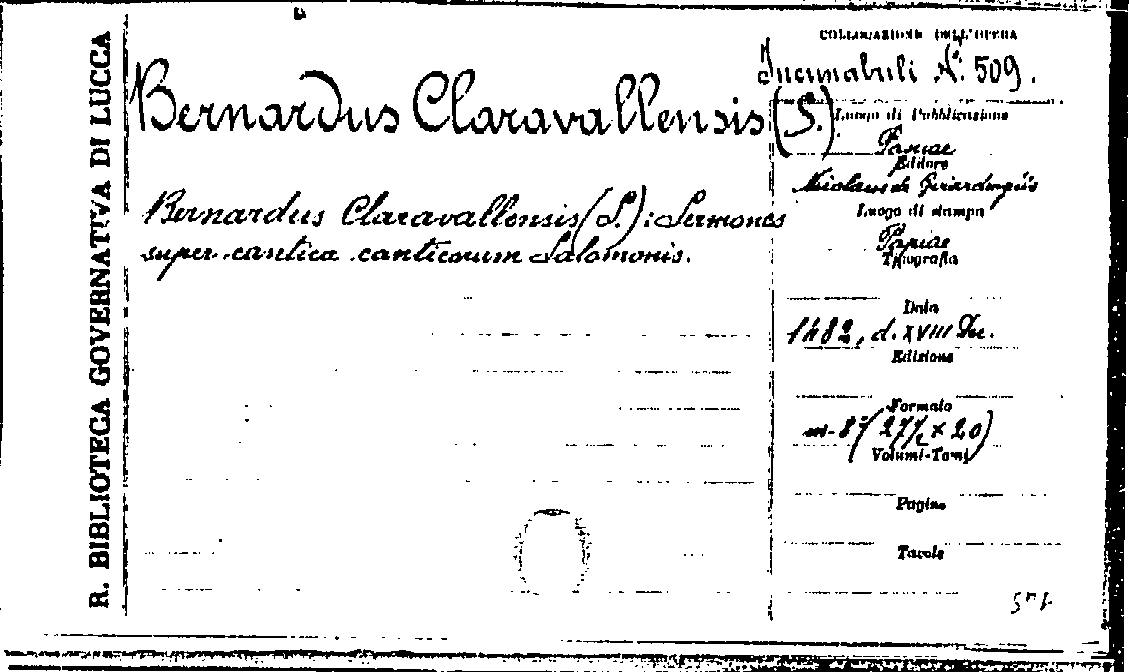 R. BIBLIOTECA GOVERNATIVA DI LUCCA
Bernardus Claravallensis (S.)
Bernardus Claravallensis (S.): Sermones
super cantica canticorum Salomonis.
COLLOCAZIONE DELL'OPERA
Incunabuli N. 509.
Luogo di Pubblicazione
Papiae
Editore
Nicolaus de Girardengis
Luogo di stampa
Papiae
Tipografia
Data
1482, d. XVIII
Edizione
Formato
in-8° (27½ × 20)
Volumi-Tomi
Pagine
Tavole